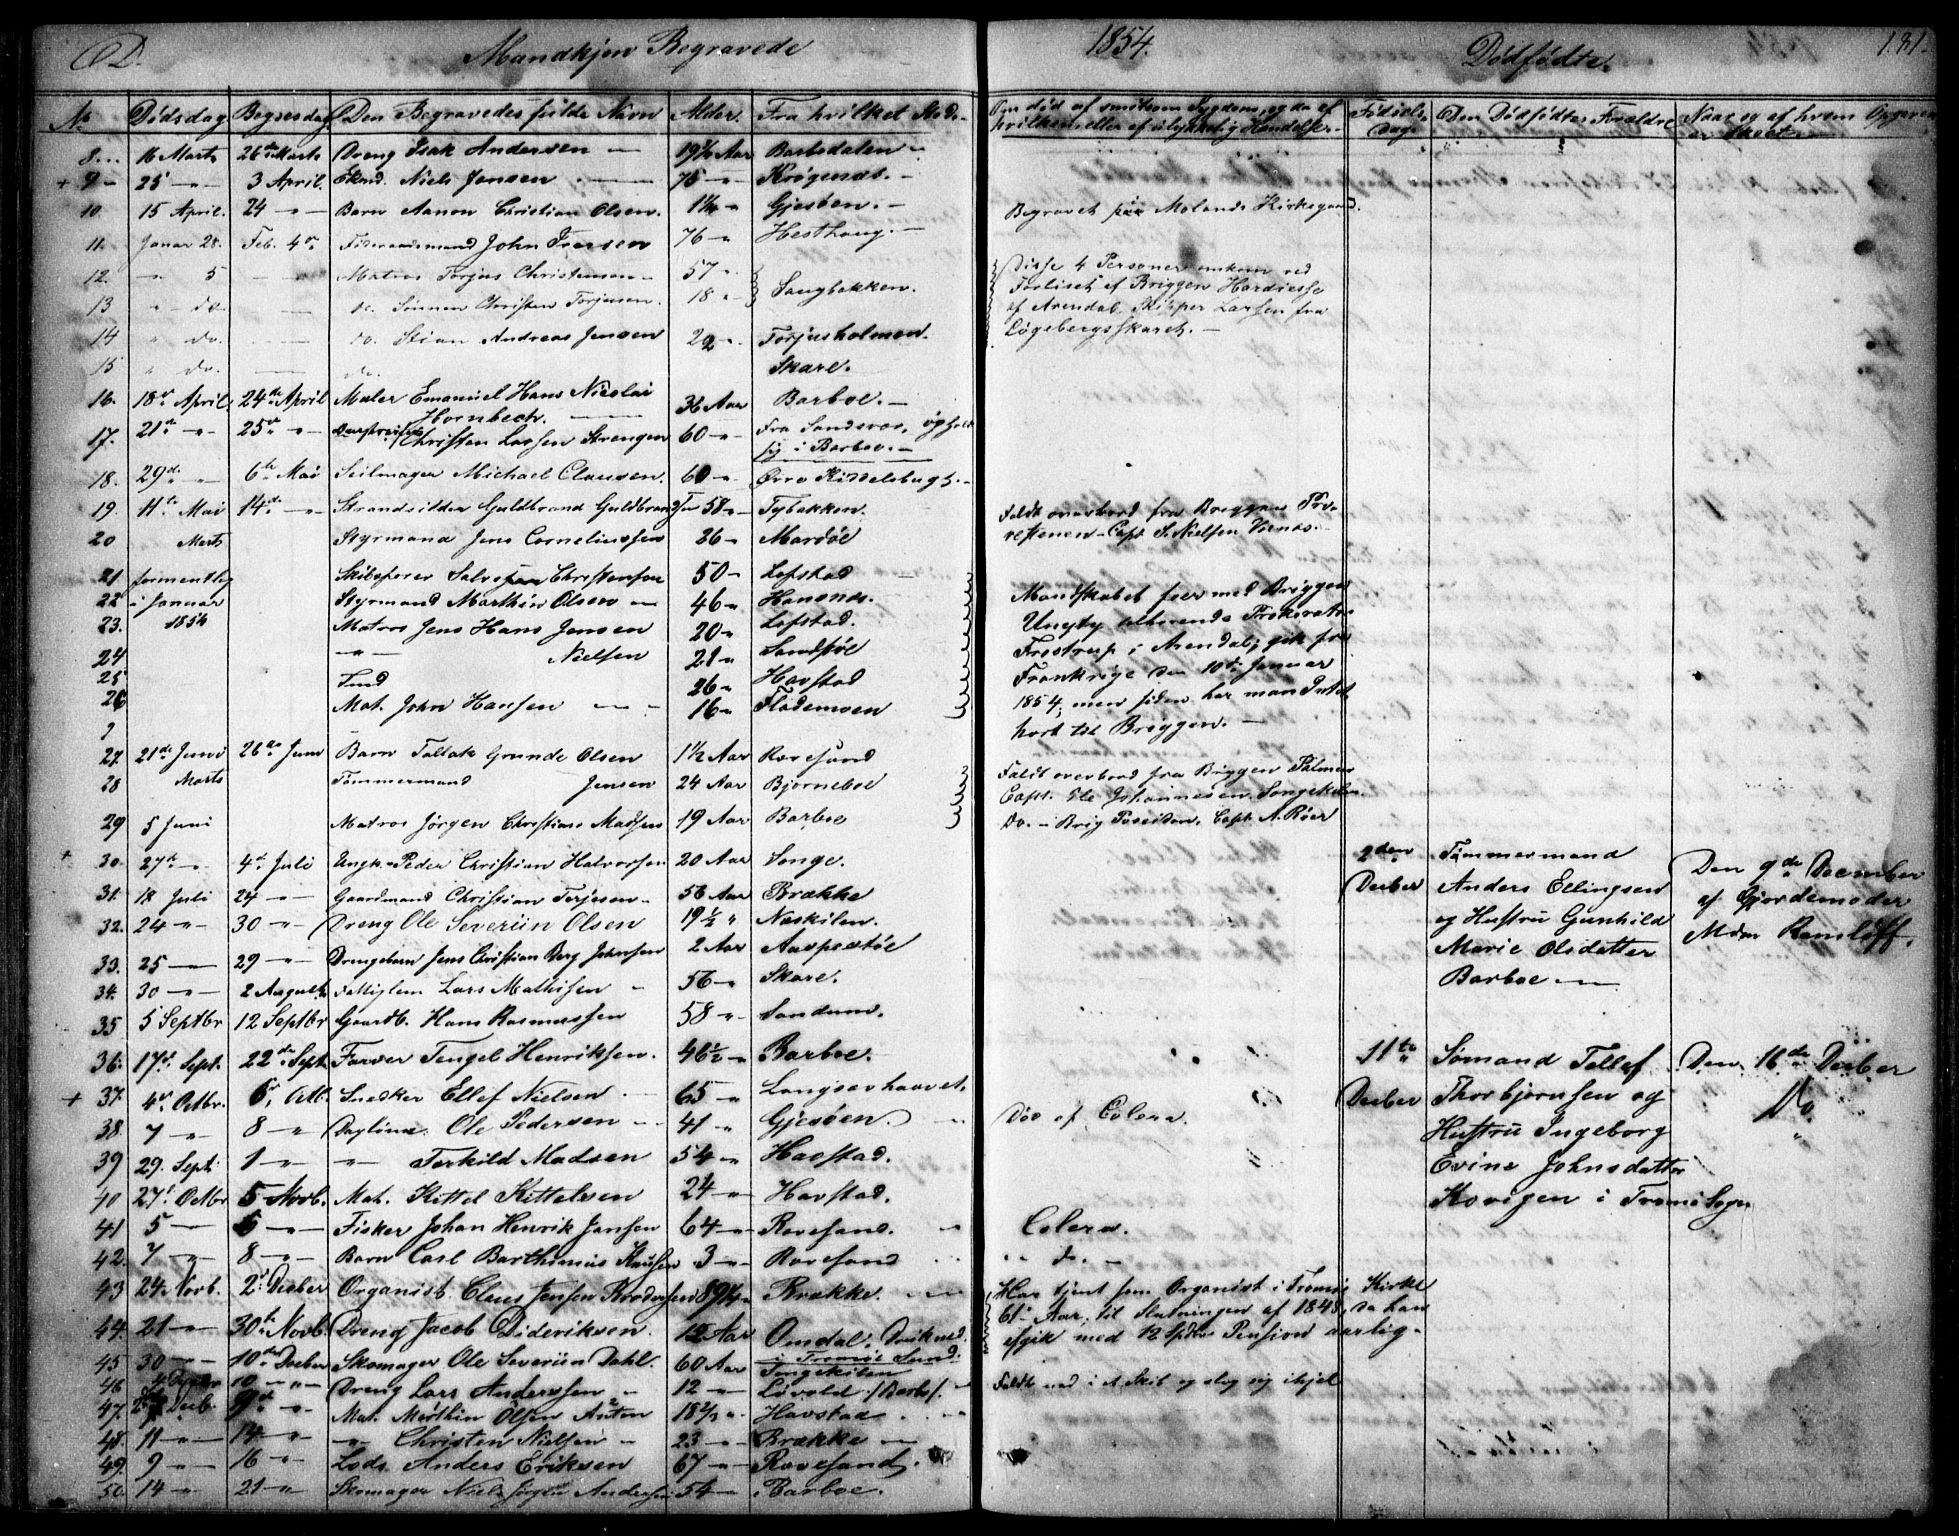 D. Mandkjøn Begravede 1854. Dødfødte. 181.
No Dødsdag Begr.sesdag Den Begravedes fulde Navn Alder. Fra hvilket Sted.
Om død af smitsom Sygdom, og da af hvilken, eller af ulykkelig Hændelse. Fødsels Dag. Den Dødfødtes Forældre Naar og af hvem Opgaven er skeet
8. 16 Marts 26de Marts Dreng Isak Andersen 19½ Aar Barbodalen
+ 9 25 " 3 April. Niels Jensen 75 " Krøgenæs.
10. 15 April. 24 " Barn Aanon Christian Olsen. Gjesøen.
Begravet paa Molands Kirkegaard.
11. Januar 28. Feb. 4de Føderaadsmand John Iversen 76 " Hesthaug.
12. " 5 Matros Torjus Christensen 57 "
13 " do. do. Sønnen Christen Torjusen. 18 " Sangbakken.
14 " do. do. Stian Andreas Jensen 22 ". Torjusholmen.
15 " do. do. Skare.
Disse 4 Personer omkom ved
Forliset af Briggen Hardiesse
af Arendal, Skipper Larsen fra
Løgebergsskaret.
16. 18de April. 24de April Maler Emanuel Hans Nicolai Hornbech. 36 Aar Barboe.
17. 21de " 25de " Christen Larsen Strengen 60 " Fra Sandsvær, ophold sig i Barboe.
18. 29de " 6te Mai Seilmager Michael Clausen. 60 " Øvre Kittelsbugt.
19. 11te Mai 14de " Strandsidder Guldbrand Guldbrandsen 58 " Tybakken.
20 Marts Styrmand Jens Corneliussen 26 " Mardøe
Faldt overbord fra Briggen
Capt. S. Nielsen
21 formentlig Skibsfører Salve Christensen 50 " Lofstad
22 i Januar Styrmand Marthin Olsen 46 " Hansnes.
23. 1854 Matros Jens Hans Jensen 20 " Lofstad.
24 " Nielsen 21 " Sandstøe
25 Lund 26 " Havstad
26 Mat. John Hansen 16 " Flødemoen
Mandskabet foer med Briggen
Ungty tilhørende Prokurator
Frostrup i Arendal; gik fra
Frankrige den 10de Januar
1854, men siden har man Intet
hørt til Briggen.
27. 21de Juni 26de Juni Barn Tallak Grunde Olsen 1½ Aar Revesand
28 Marts Tømmermand Jensen 24 Aar Bjørneboe
Faldt overbord fra Briggen Palmen
Capt. Ole Johannesen Songekilen.
29 5 Juni Matros Jørgen Christian Madsen 19 Aar Barboe
Do. i Brig Poseidon, Capt. A. Røer
+ 30. 27de " 4de Juli Ungk. Peder Christian Halvorsen 20 Aar Songe.
31. 18 Juli 24 " Gaardmand Christian Terjesen 56 Aar Brække
32. 24 " 30 " Dreng Ole Severiin Olsen 19½ " Næskilen.
33. 25 29 " Drengebarn Jens Christian Berg Johnsen 2 Aar Aasperstøe
34. 30 " 2 August Fattiglem Lars Mathisen 56 " Skare.
2den Decber Tømmermand
Anders Ellingsen
og Hustru Gunhild
Marie Olsdatter
Barboe
Den 9de December
af Gjordemoder
Mdm Ramløff.
35 5 Septbr 12 Septbr Gaardb. Hans Rasmussen 58 " Sandum.
36. 17de Sept. 22de Sept. Farver Tengel Henriksen. 46½ " Barboe.
+ 37. 4de Octbr. 6, Octb. Snedker Ellef Nielsen 65 " Langsævhauvet.
38. 7 " 8 " Daglønn. Ole Pedersen 41 " Gjesøen. Død af Colera.
39 29. Sept. 1 " " Terkild Madsen 54 " Havstad.
40 27de Octbr 5 Novb. Mat. Kittel Kittelsen 24 " Havstad.
41 5 6 " Fisker Johan Henrik Jansen 64 " Revesand. Colera.
42. 7 " 8 " Barn Carl Barthimæus Klausen 3 " Revesand " d.
11te Decber Sømand Tellef
Thorbjørnsen og
Hustru Ingeborg
Evine Johnsdatter
Kovigen i Tromø Sogn
Den 16de Decber
Do
43 24 Novb. 2de Decber Organist Claus Jensen 89 Brække.
Har tjent som Organist i Tromø Kirke
61 Aar, til Slutningen af 1848, da han
afgik med 12 Spdlr Pension aarlig.
44. 21 " 30te Novb. Dreng Jacob Dideriksen. 12 Aar Omdal, i Tromøe Sund.
45 30 " 10de Decber Skomager Ole Severiin Dahl. 60 Aar Songekilen
46 10 " Dreng Lars Anderssen 12 " Løvold /Barbo/. Faldt ned i et Skib og slog sig ihjel
47. Decb. 9de " Mat. Marthin Olsen Anton 18 Havstad
48. 11 " 14 " " Christen Nielsen 23 " Brække
49. 9 " 16 " Lods. Anders Eriksen 67 " Revesand.
50. 14 " 21 " Skomager Niels Jørgen Andersen 54 " Barboe.